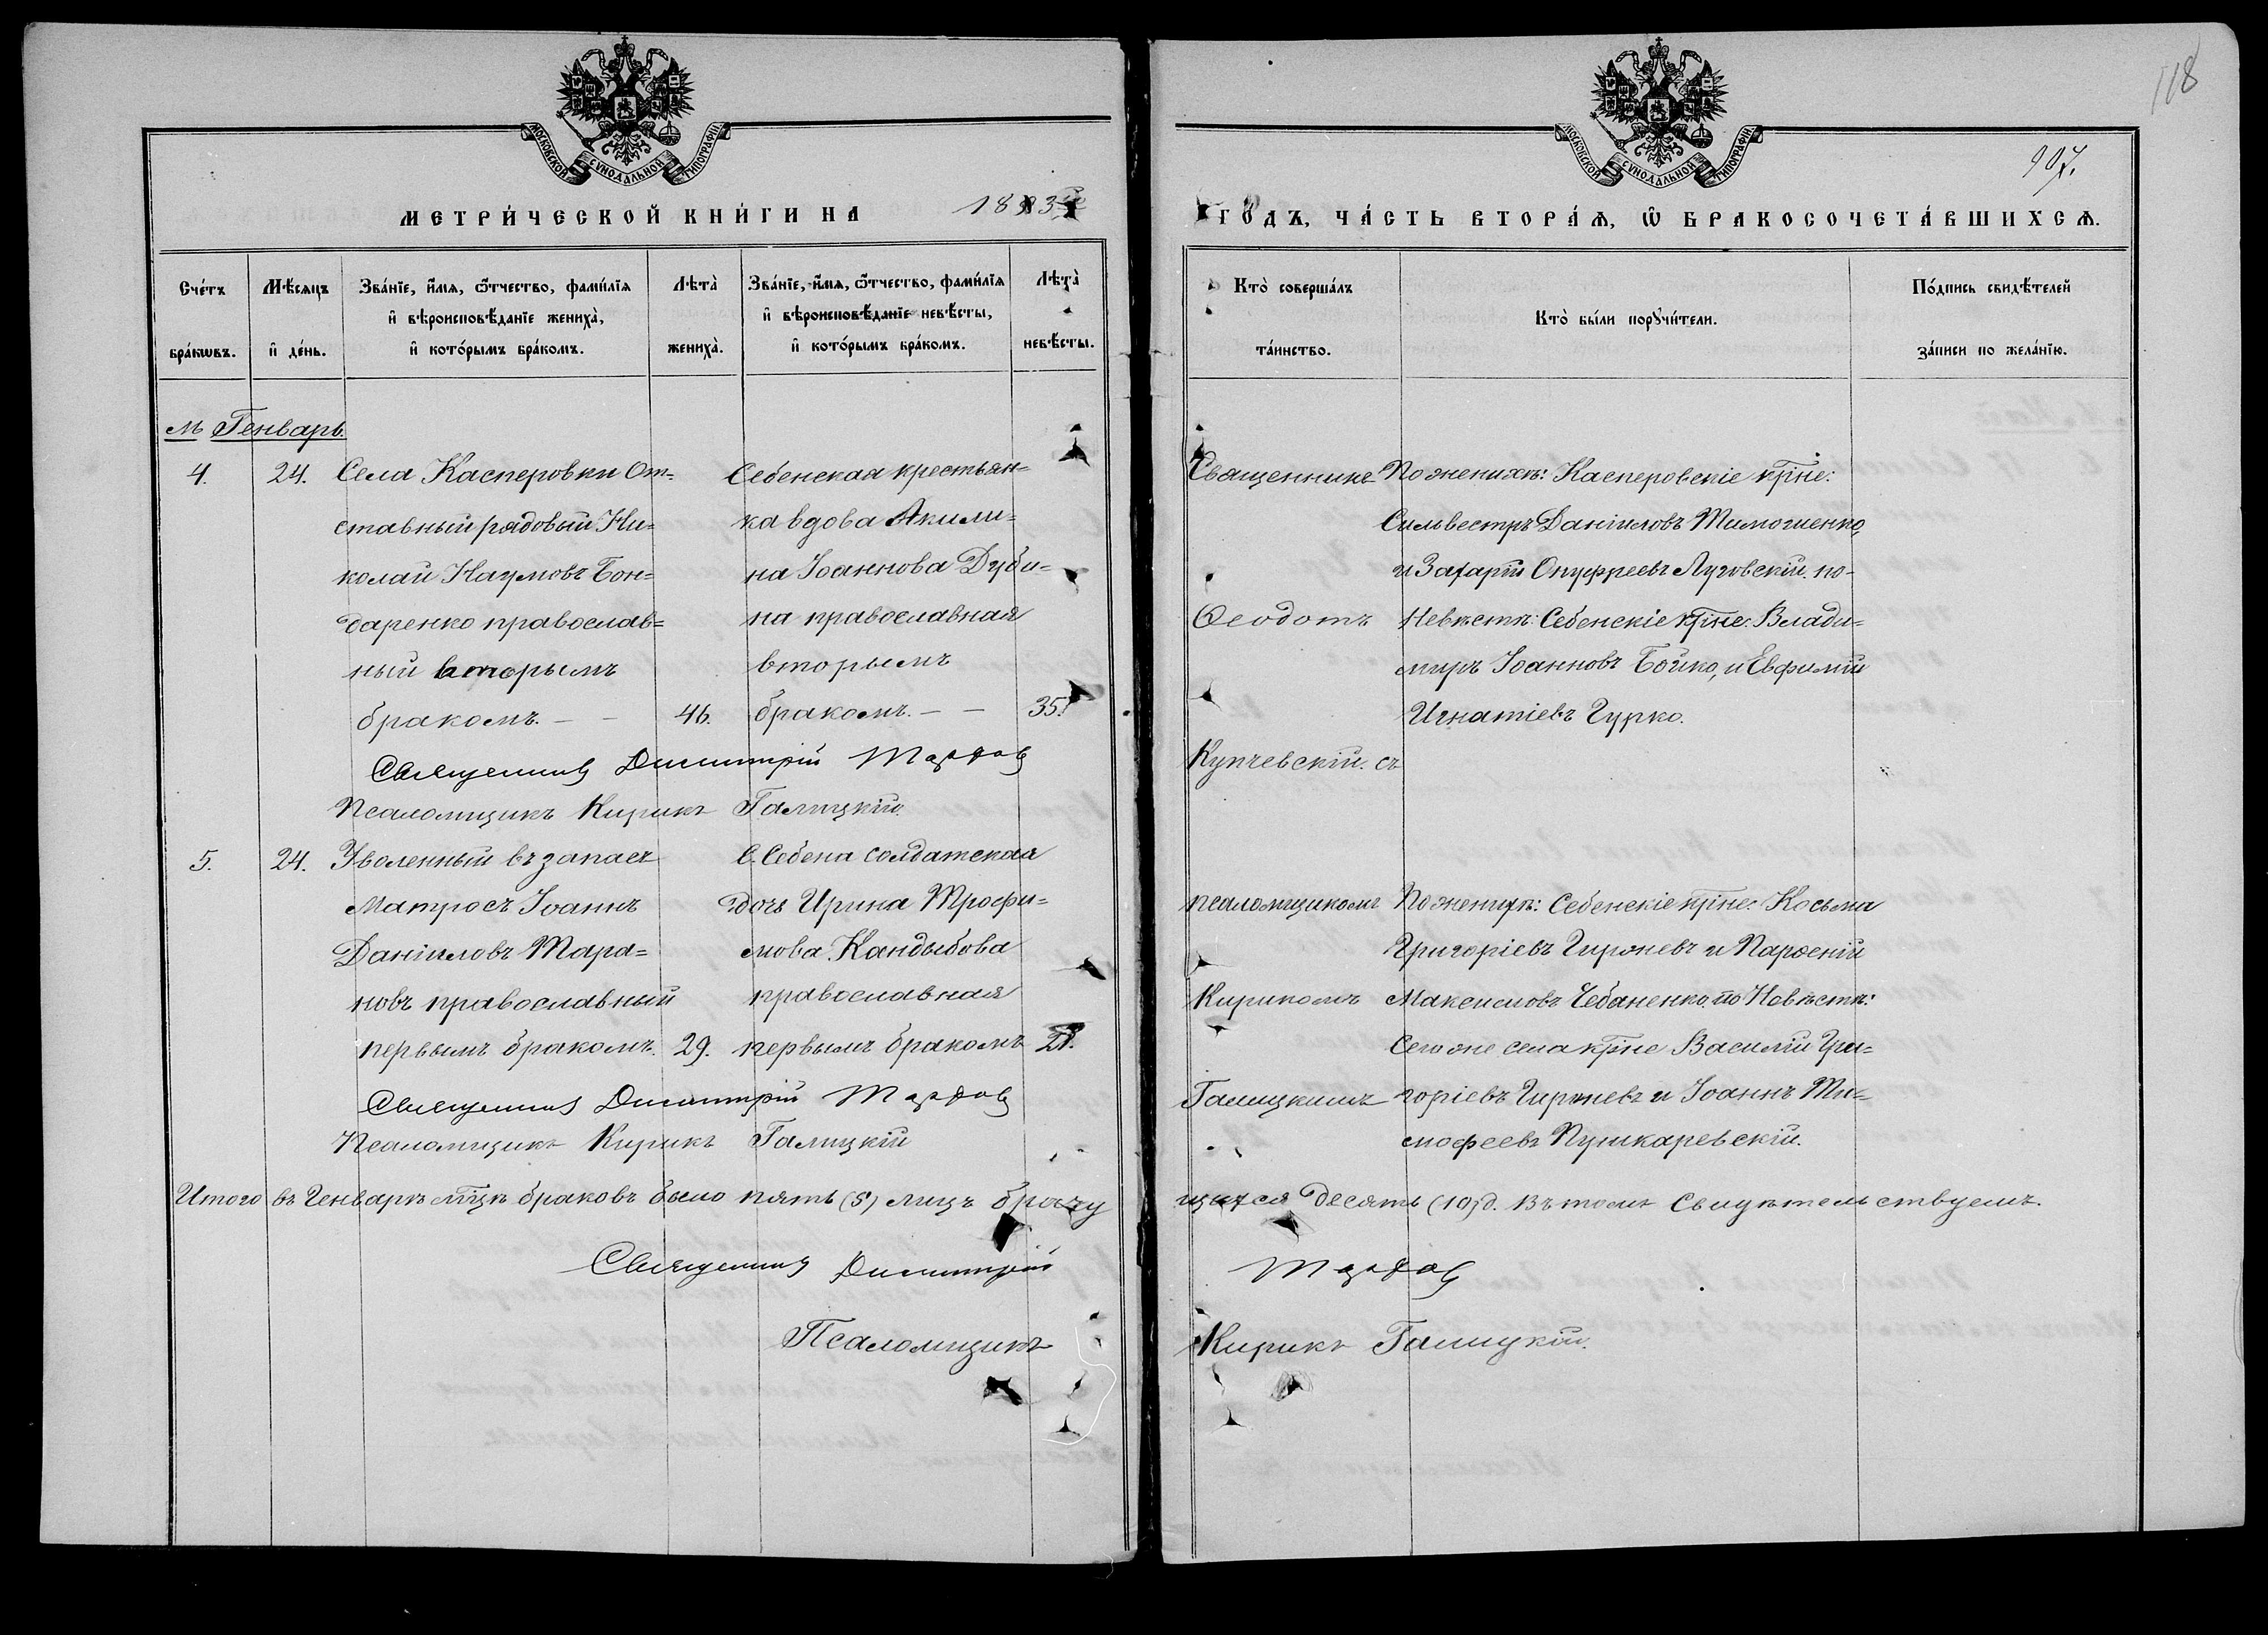 118
907.
МОСКОВСКОЙ СѴНОДАЛЬНОЙ ТИПОГРАФІИ.
МОСКОВСКОЙ СѴНОДАЛЬНОЙ ТИПОГРАФІИ.
МЕТРИ́ЧЕСКОЙ КНИ́ГИ НА 1893
ГО́ДЪ, ЧА́СТЬ ВТОРА́Ѧ, Ѡ҆ БРАКОСОЧЕТА́ВШИХСѦ.
Сче́тъ бра́кѡвъ.
Мѣ́сяцъ и҆ де́нь.
Зва́нїе, и҆́мя, ѻ҆́тчество, фами́лїя и҆ вѣроисповѣ́данїе жениха̀, и҆ кото́рымъ бра́комъ.
Лѣта̀ жениха̀.
Зва́нїе, и҆́мя, ѻ҆́тчество, фами́лїя и҆ вѣроисповѣ́данїе невѣ́сты, и҆ кото́рымъ бра́комъ.
Лѣта̀ невѣ́сты.
Кто̀ соверша́лъ та́инство.
Кто̀ бы́ли порꙋчи́тели.
По́дпись свидѣ́телей за́писи по жела́нїю.
М Генварь
4. 24. Села Касперовки От=
ставный рядовый Ни=
колай Наумовъ Бон=
даренко православ=
ный вторымъ
бракомъ. – – 46.
Себенская крестьян=
ка вдова Акили=
на Іоаннова Дуби=
на православная
вторымъ
бракомъ. – – 35.
Священникъ
Ѳеодотъ
Купчевскій. съ
По женихѣ: Касперовскіе крне:
Сильвестръ Даніиловъ Тимошенко,
и Захарій Онуфреевъ Луговскій. по-
Невѣстѣ: Себенскіе крне: Влади=
миръ Іоанновъ Бойко, и Евфимій
Игнатіевъ Гурко.
Священникъ Димитрій
Псаломщикъ Кирикъ Галицкій.
5. 24. Уволенный въ запасъ
Матросъ Іоаннъ
Даніиловъ Тара=
новъ православный
первымъ бракомъ. 29.
С. Себена солдатская
дочь Ирина Трофи=
мова Кандыбова
православная
первымъ бракомъ 21.
псаломщикомъ
Кирикомъ
Галицкимъ
По женихѣ: Себенскіе крне: Косьма
Григоріевъ Гирневъ и Парѳеній
Максимовъ Чебаненко. по Невѣстѣ:
Сего же села крне Василій Гри=
горіевъ Гирневъ и Іоаннъ Ти=
мофеевъ Пушкаревскій.
Священникъ Димитрій
Псаломщикъ Кирикъ Галицкій
Итого въ Генварѣ мцѣ браковъ было пять (5) лицъ брачу
щихся десять (10) д. Въ томъ Свидѣтельствуемъ.
Священникъ Димитрій
Псаломщикъ Кирикъ Галицкій.